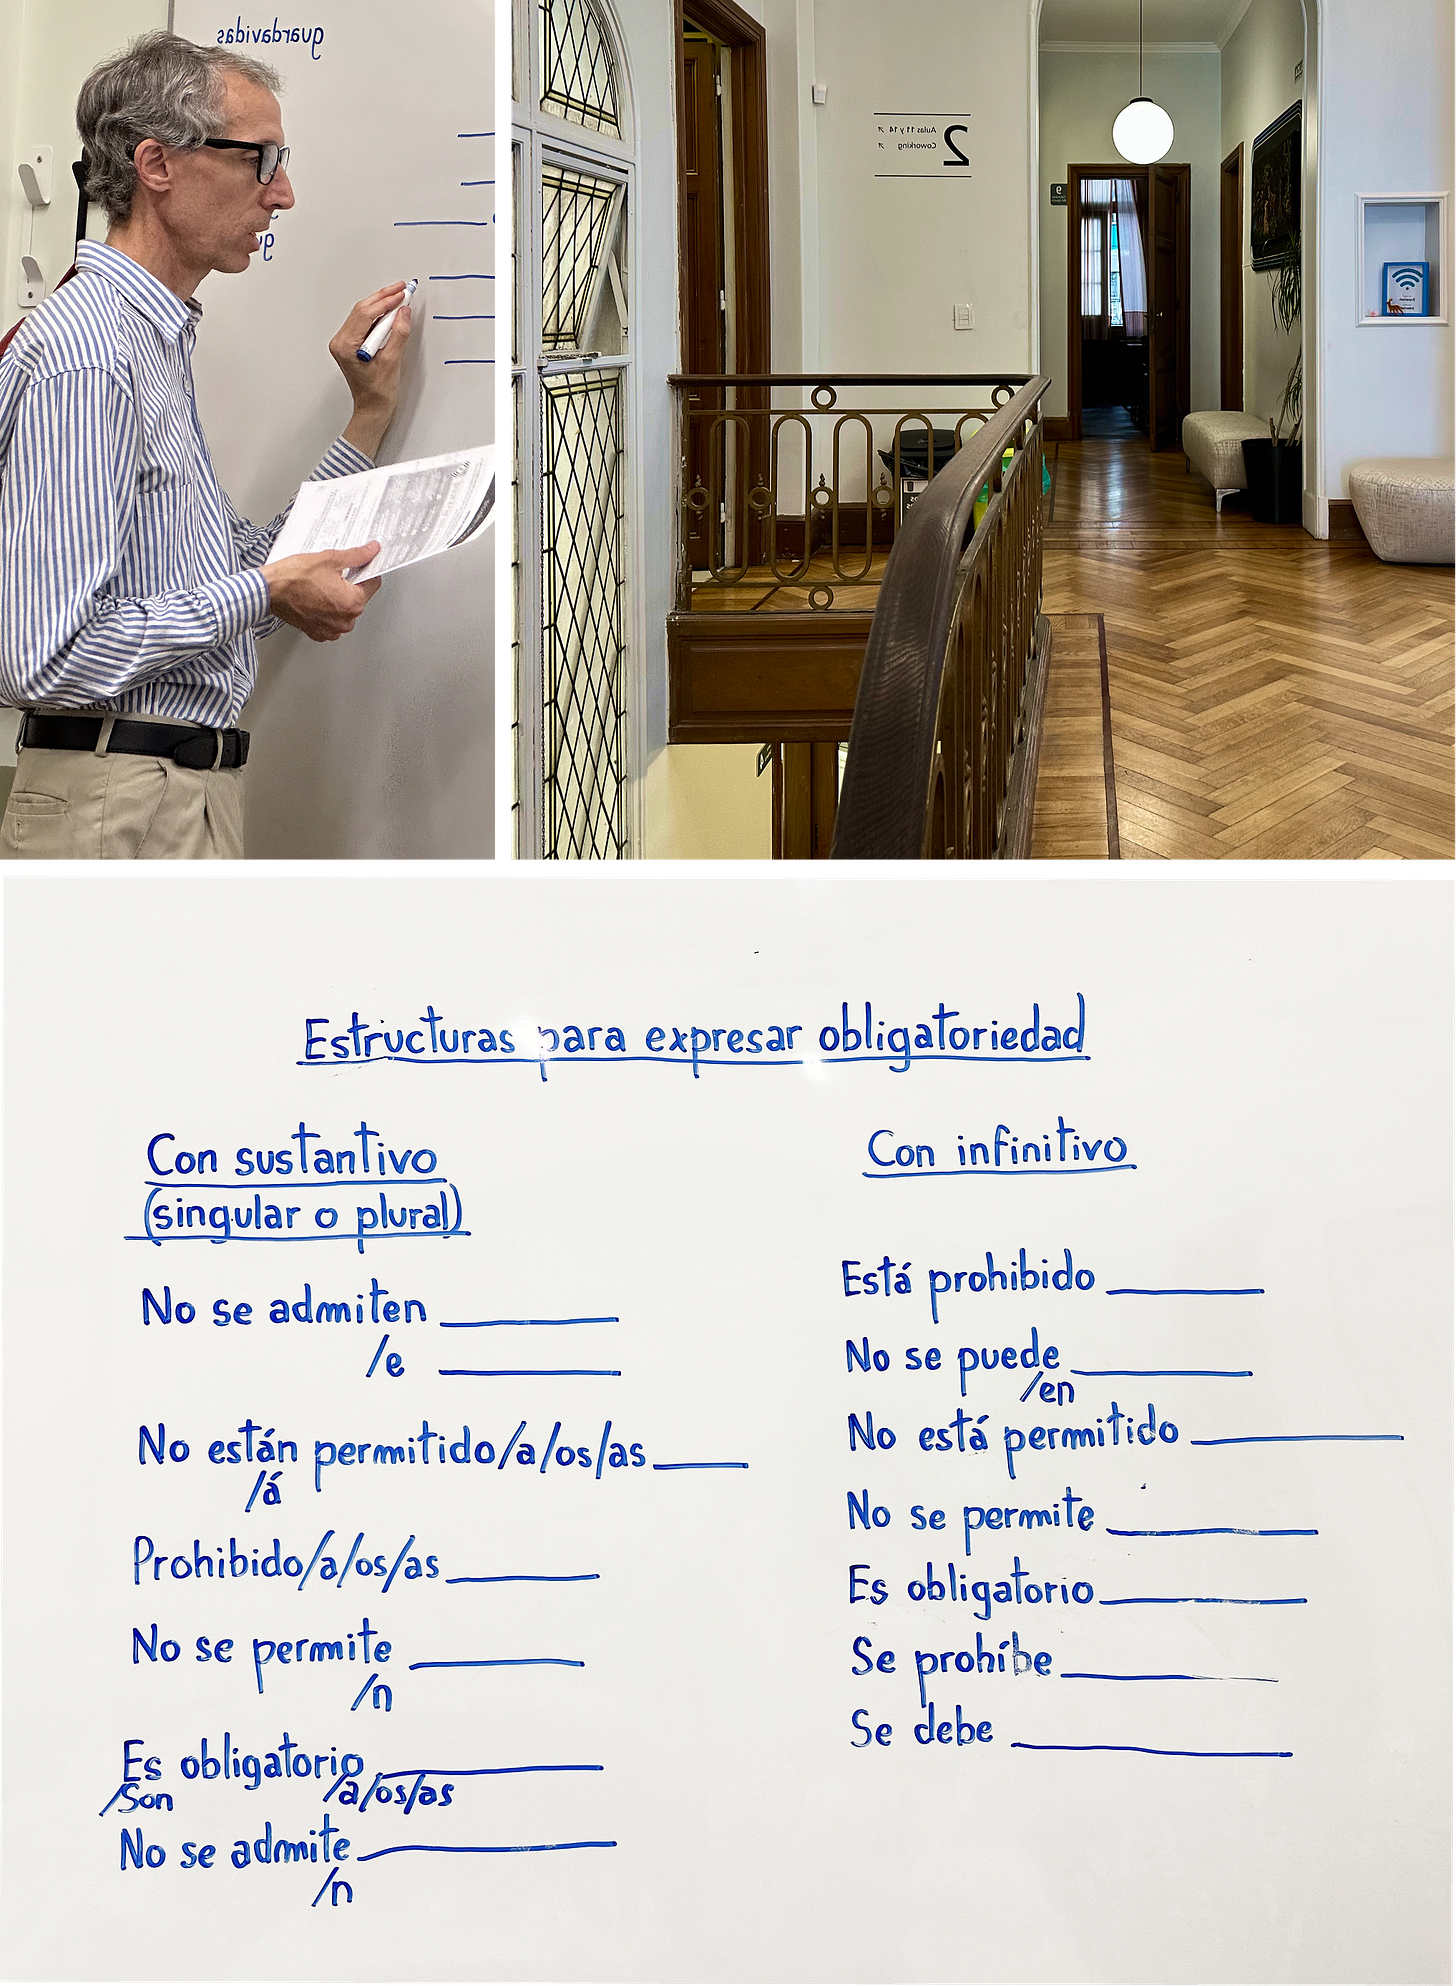 guardavidas
2
Aulas 11 y 14
Coworking
9
Estructuras para expresar obligatoriedad
Con sustantivo
(singular o plural)
No se admiten
/e
No están permitido/a/os/as
/á
Prohibido/a/os/as
No se permite
/n
Es obligatorio
/Son /a/os/as
No se admite
/n
Con infinitivo
Está prohibido
No se puede
/en
No está permitido
No se permite
Es obligatorio
Se prohíbe
Se debe